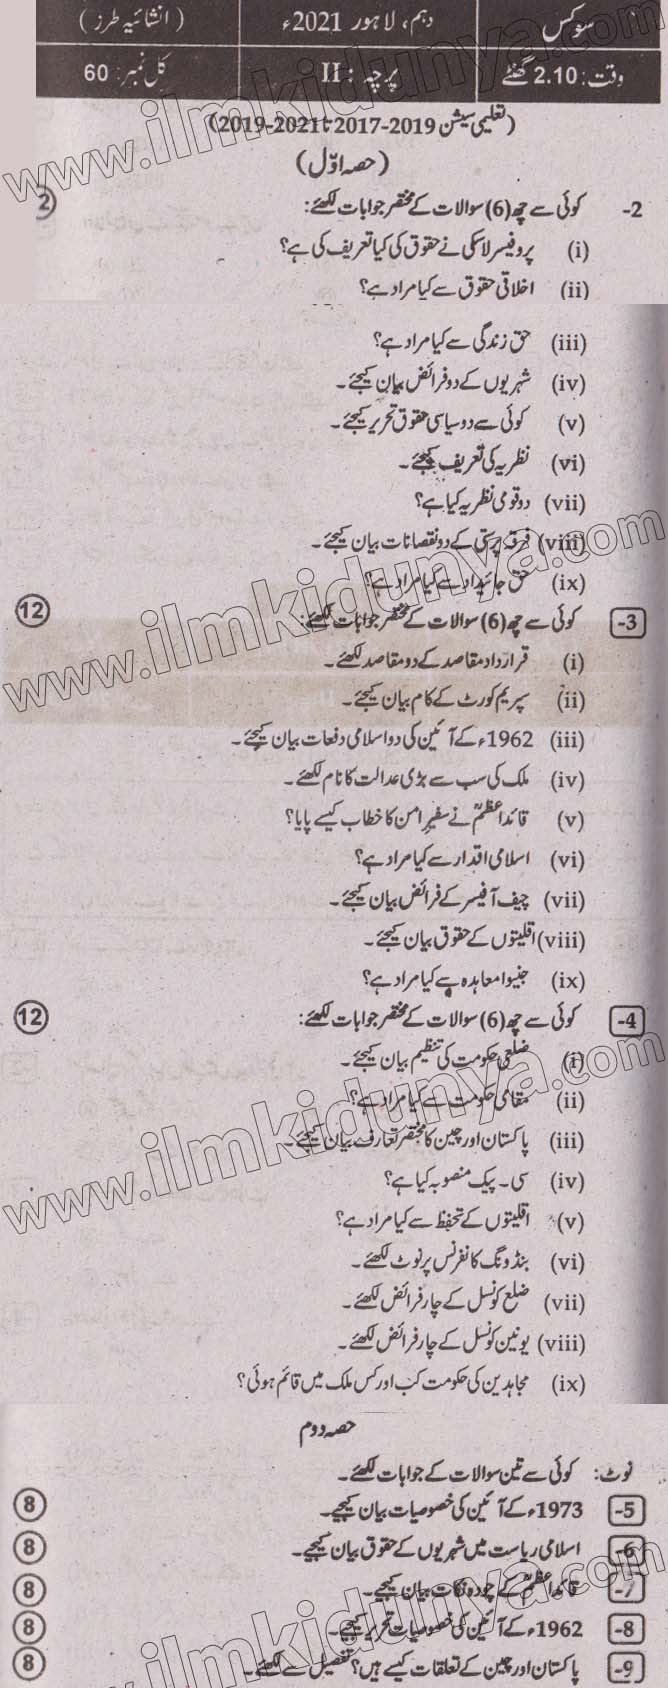 سوکس
دہم، لاہور 2021ء
(انشائیہ طرز)
وقت: 2.10 گھنٹے
پرچہ: II
کل نمبر: 60
(تعلیمی سیشن 2019-2017 تا 2021-2019)
(حصہ اوّل)
2- کوئی سے چھ (6) سوالات کے مختصر جوابات لکھئے: 2
(i) پروفیسر لاسکی نے حقوق کی کیا تعریف کی ہے؟
(ii) اخلاقی حقوق سے کیا مراد ہے؟
(iii) حق زندگی سے کیا مراد ہے؟
(iv) شہریوں کے دو فرائض بیان کیجئے۔
(v) کوئی سے دو سیاسی حقوق تحریر کیجئے۔
(vi) نظریہ کی تعریف کیجئے۔
(vii) دو قومی نظریہ کیا ہے؟
(viii) فرقہ پرستی کے دو نقصانات بیان کیجئے۔
(ix) حق جائیداد سے کیا مراد ہے؟
3- کوئی سے چھ (6) سوالات کے مختصر جوابات لکھئے: 12
(i) قرارداد مقاصد کے دو مقاصد لکھئے۔
(ii) سپریم کورٹ کے کام بیان کیجئے۔
(iii) 1962ء کے آئین کی دو اسلامی دفعات بیان کیجئے۔
(iv) ملک کی سب سے بڑی عدالت کا نام لکھئے۔
(v) قائداعظمؒ نے سفیر امن کا خطاب کیسے پایا؟
(vi) اسلامی اقدار سے کیا مراد ہے؟
(vii) چیف آفیسر کے فرائض بیان کیجئے۔
(viii) اقلیتوں کے حقوق بیان کیجئے۔
(ix) جنیوا معاہدہ سے کیا مراد ہے؟
4- کوئی سے چھ (6) سوالات کے مختصر جوابات لکھئے: 12
(i) ضلعی حکومت کی تنظیم بیان کیجئے۔
(ii) مقامی حکومت سے کیا مراد ہے؟
(iii) پاکستان اور چین کا مختصر تعارف بیان کیجئے۔
(iv) سی۔ پیک منصوبہ کیا ہے؟
(v) اقلیتوں کے تحفظ سے کیا مراد ہے؟
(vi) بنڈونگ کانفرنس پر نوٹ لکھئے۔
(vii) ضلع کونسل کے چار فرائض لکھئے۔
(viii) یونین کونسل کے چار فرائض لکھئے۔
(ix) مجاہدین کی حکومت کب اور کس ملک میں قائم ہوئی؟
حصہ دوم
نوٹ: کوئی سے تین سوالات کے جوابات لکھئے۔
5- 1973ء کے آئین کی خصوصیات بیان کیجیے۔ 8
6- اسلامی ریاست میں شہریوں کے حقوق بیان کیجئے۔ 8
7- قائداعظمؒ کے چودہ نکات بیان کیجیے۔ 8
8- 1962ء کے آئین کی خصوصیات تحریر کیجیے۔ 8
9- پاکستان اور چین کے تعلقات کیسے ہیں؟ تفصیل سے لکھئے۔ 8
www.ilmkidunya.com
www.ilmkidunya.com
www.ilmkidunya.com
www.ilmkidunya.com